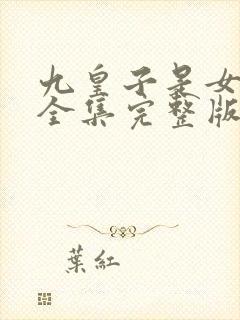 九皇子是女
全集完整版
葉紅